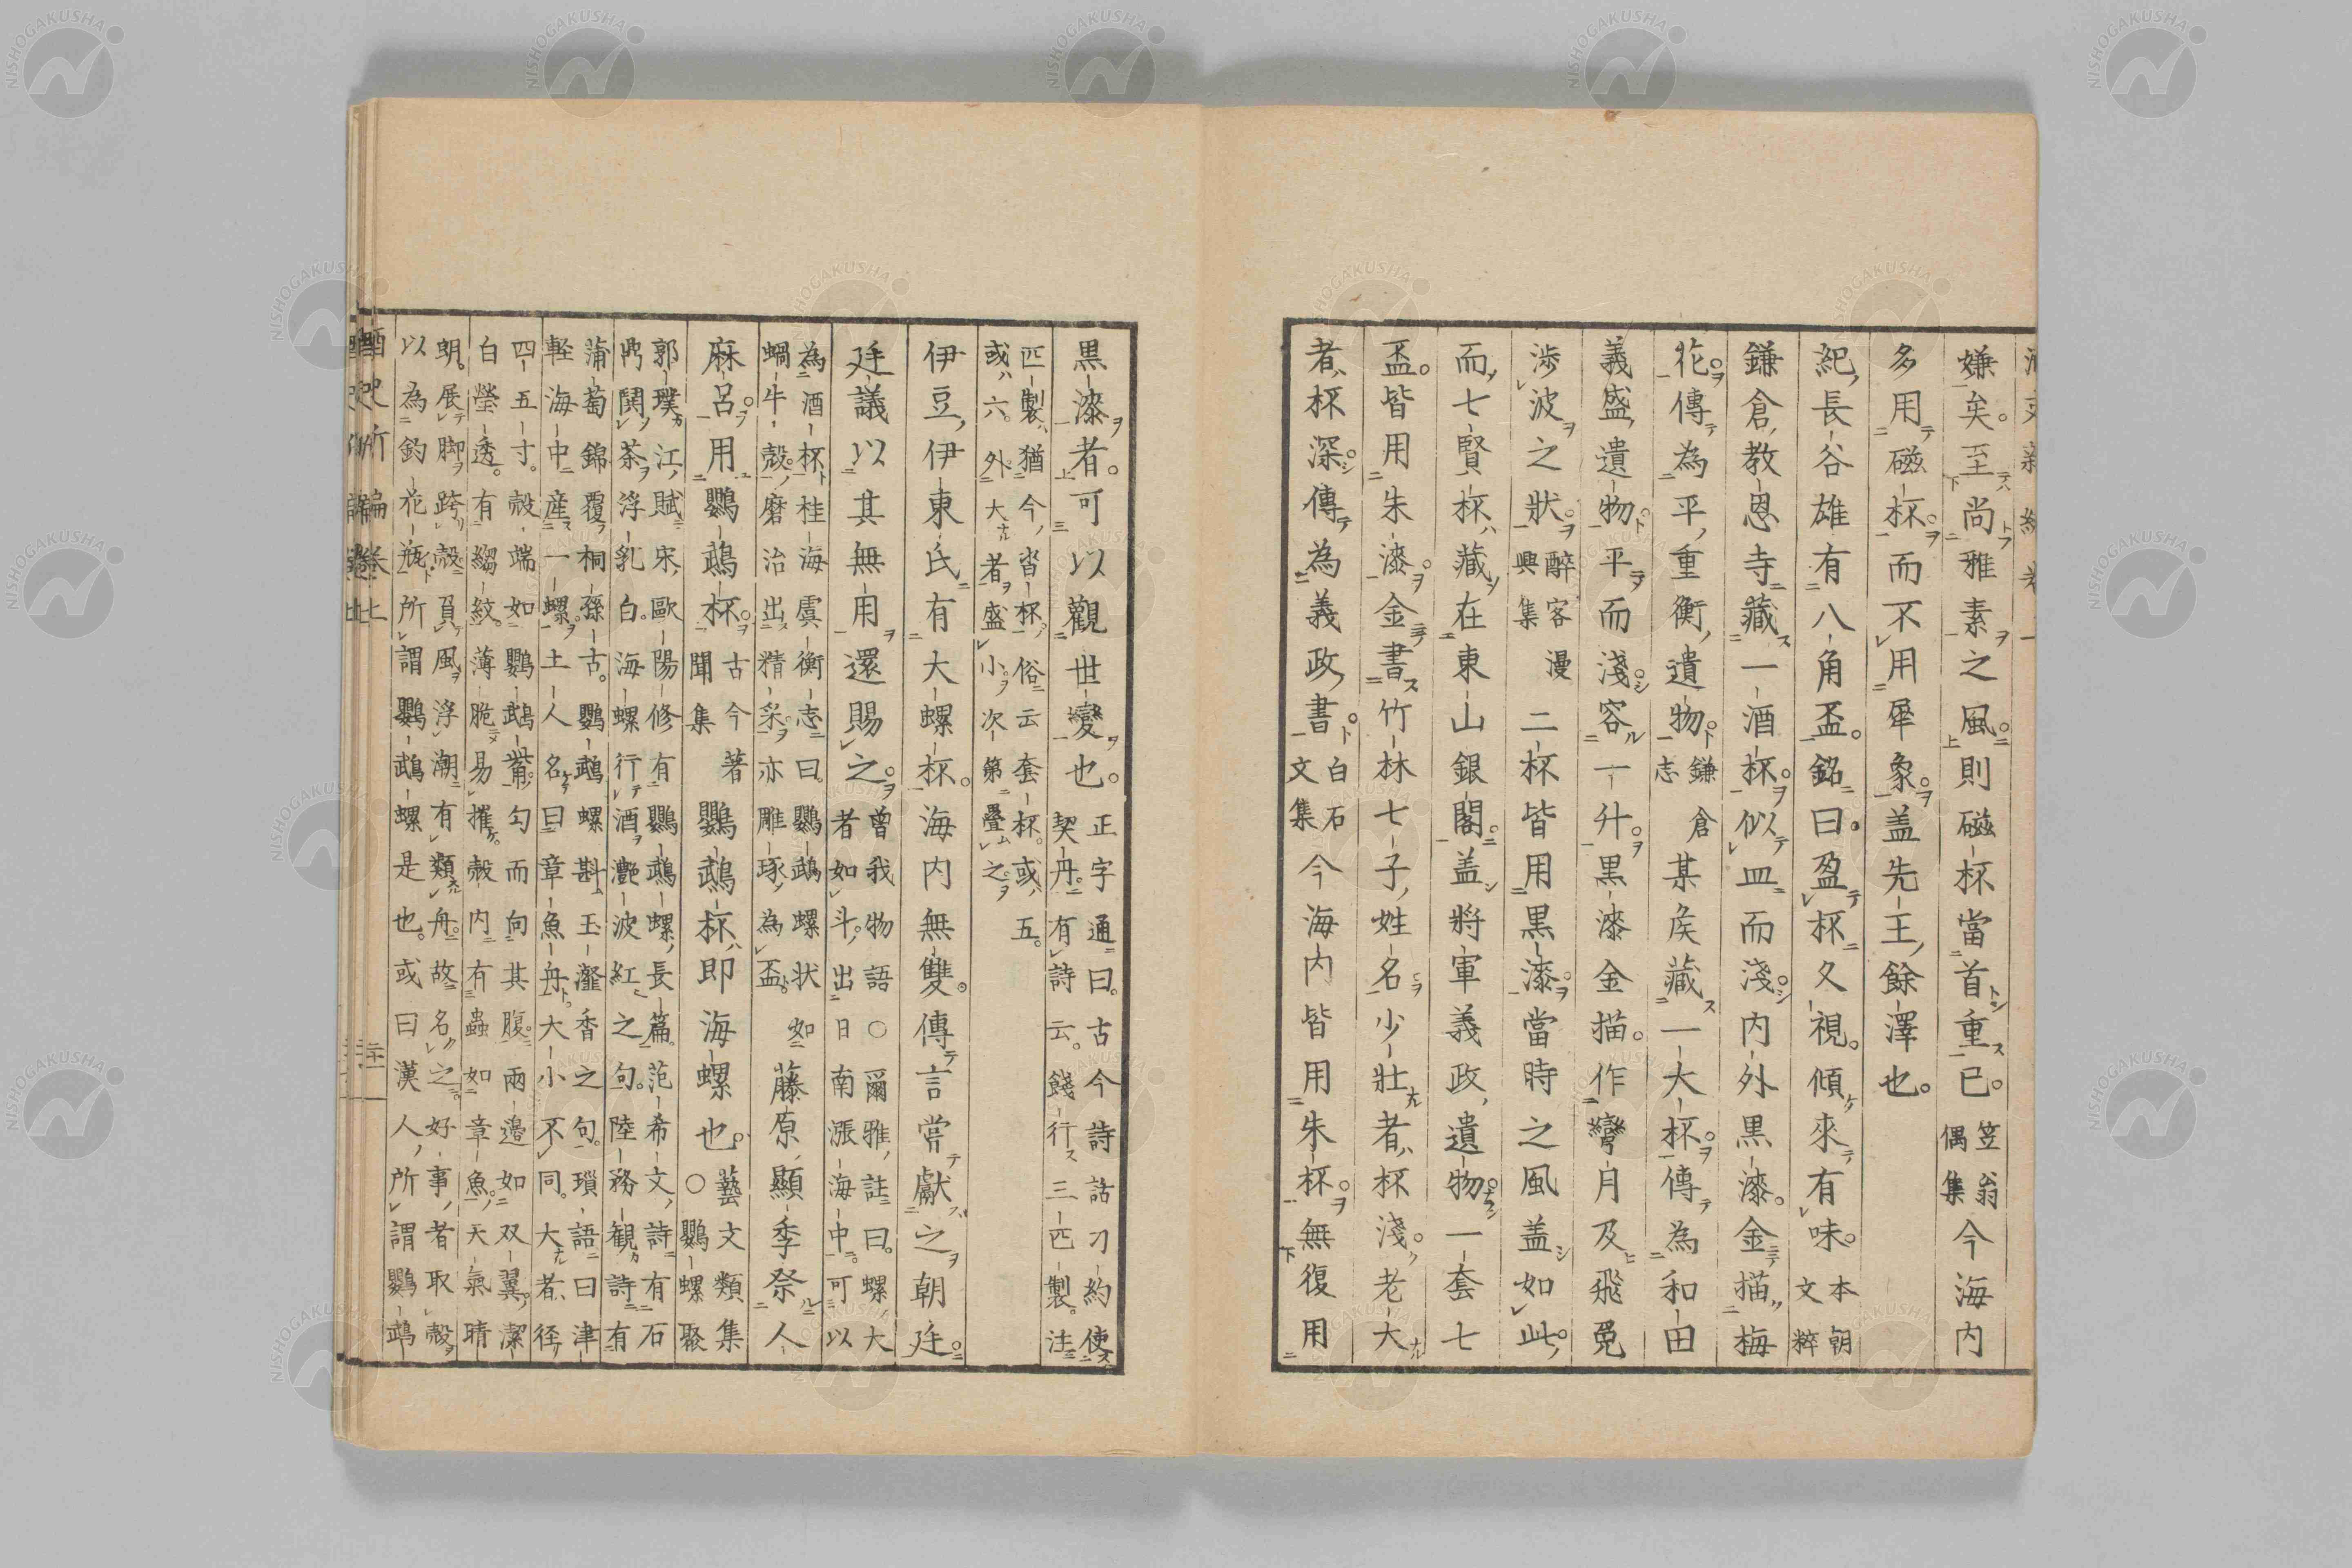 嫌矣。至尚雅素之風。則磁杯當首重已。笠翁偶集今海内
多用磁杯。而不用犀象。盖先王餘澤也。
紀長谷雄有八角盃。銘曰。盈杯久視。傾來有味。本朝文粹
鎌倉教恩寺藏一酒杯。似皿而淺。内外黒漆。金描梅
花傳為平重衡遺物。鎌倉志某矦藏一大杯。傳為和田
義盛遺物。平而淺。容一升。黒漆金描。作彎月及飛兎
渉波之狀。醉客漫興集二杯皆用黒漆。當時之風盖如此。
而七賢杯藏在東山銀閣。盖將軍義政遺物。一套七
盃。皆用朱漆。金書竹林七子姓名。少壯者杯淺。老大
者杯深。傳為義政書。白石文集今海内皆用朱杯。無復用
黒漆者。可以觀世變也。正字通曰。古今詩話刁約使契丹。有詩云。餞行三匹製。注
匹製猶今沓杯。俗云套杯。或五。或六。外大者盛小。次第疊之。
伊豆伊東氏有大螺杯。海内無雙。傳言嘗獻之朝廷。
廷議以其無用還賜之。曾我物語○爾雅註曰。螺大者如斗。出日南漲海中。可以
為酒杯桂海虞衡志曰。鸚鵡螺状如蝸牛殻。磨治出精采。亦雕琢為盃。藤原顯季祭人
麻呂。用鸚鵡杯。古今著聞集鸚鵡杯即海螺也。藝文類集○鸚螺聚
郭璞江賦宋歐陽修有鸚鵡螺長篇。范希文詩有石鬭茶浮乳白。海螺行酒灔波紅之句。陸務観詩有
蒲萄錦覆桐孫古。鸚鵡螺斟玉瀣香之句。瑣語曰津軽海中産一螺。土人名曰章魚舟。大小不同。大者径
四五寸。殻端如鸚鵡觜。勾而向其腹。兩邉如双翼。潔白瑩透。有縐紋。薄脆易摧。殻内有蟲如章魚。天氣晴
朗。展脚跨殻負風浮潮。有類舟。故名之。好事者取殻以為釣花瓶。所謂鸚鵡螺是也。或曰漢人所謂鸚鵡
NISHOGAKUSHA